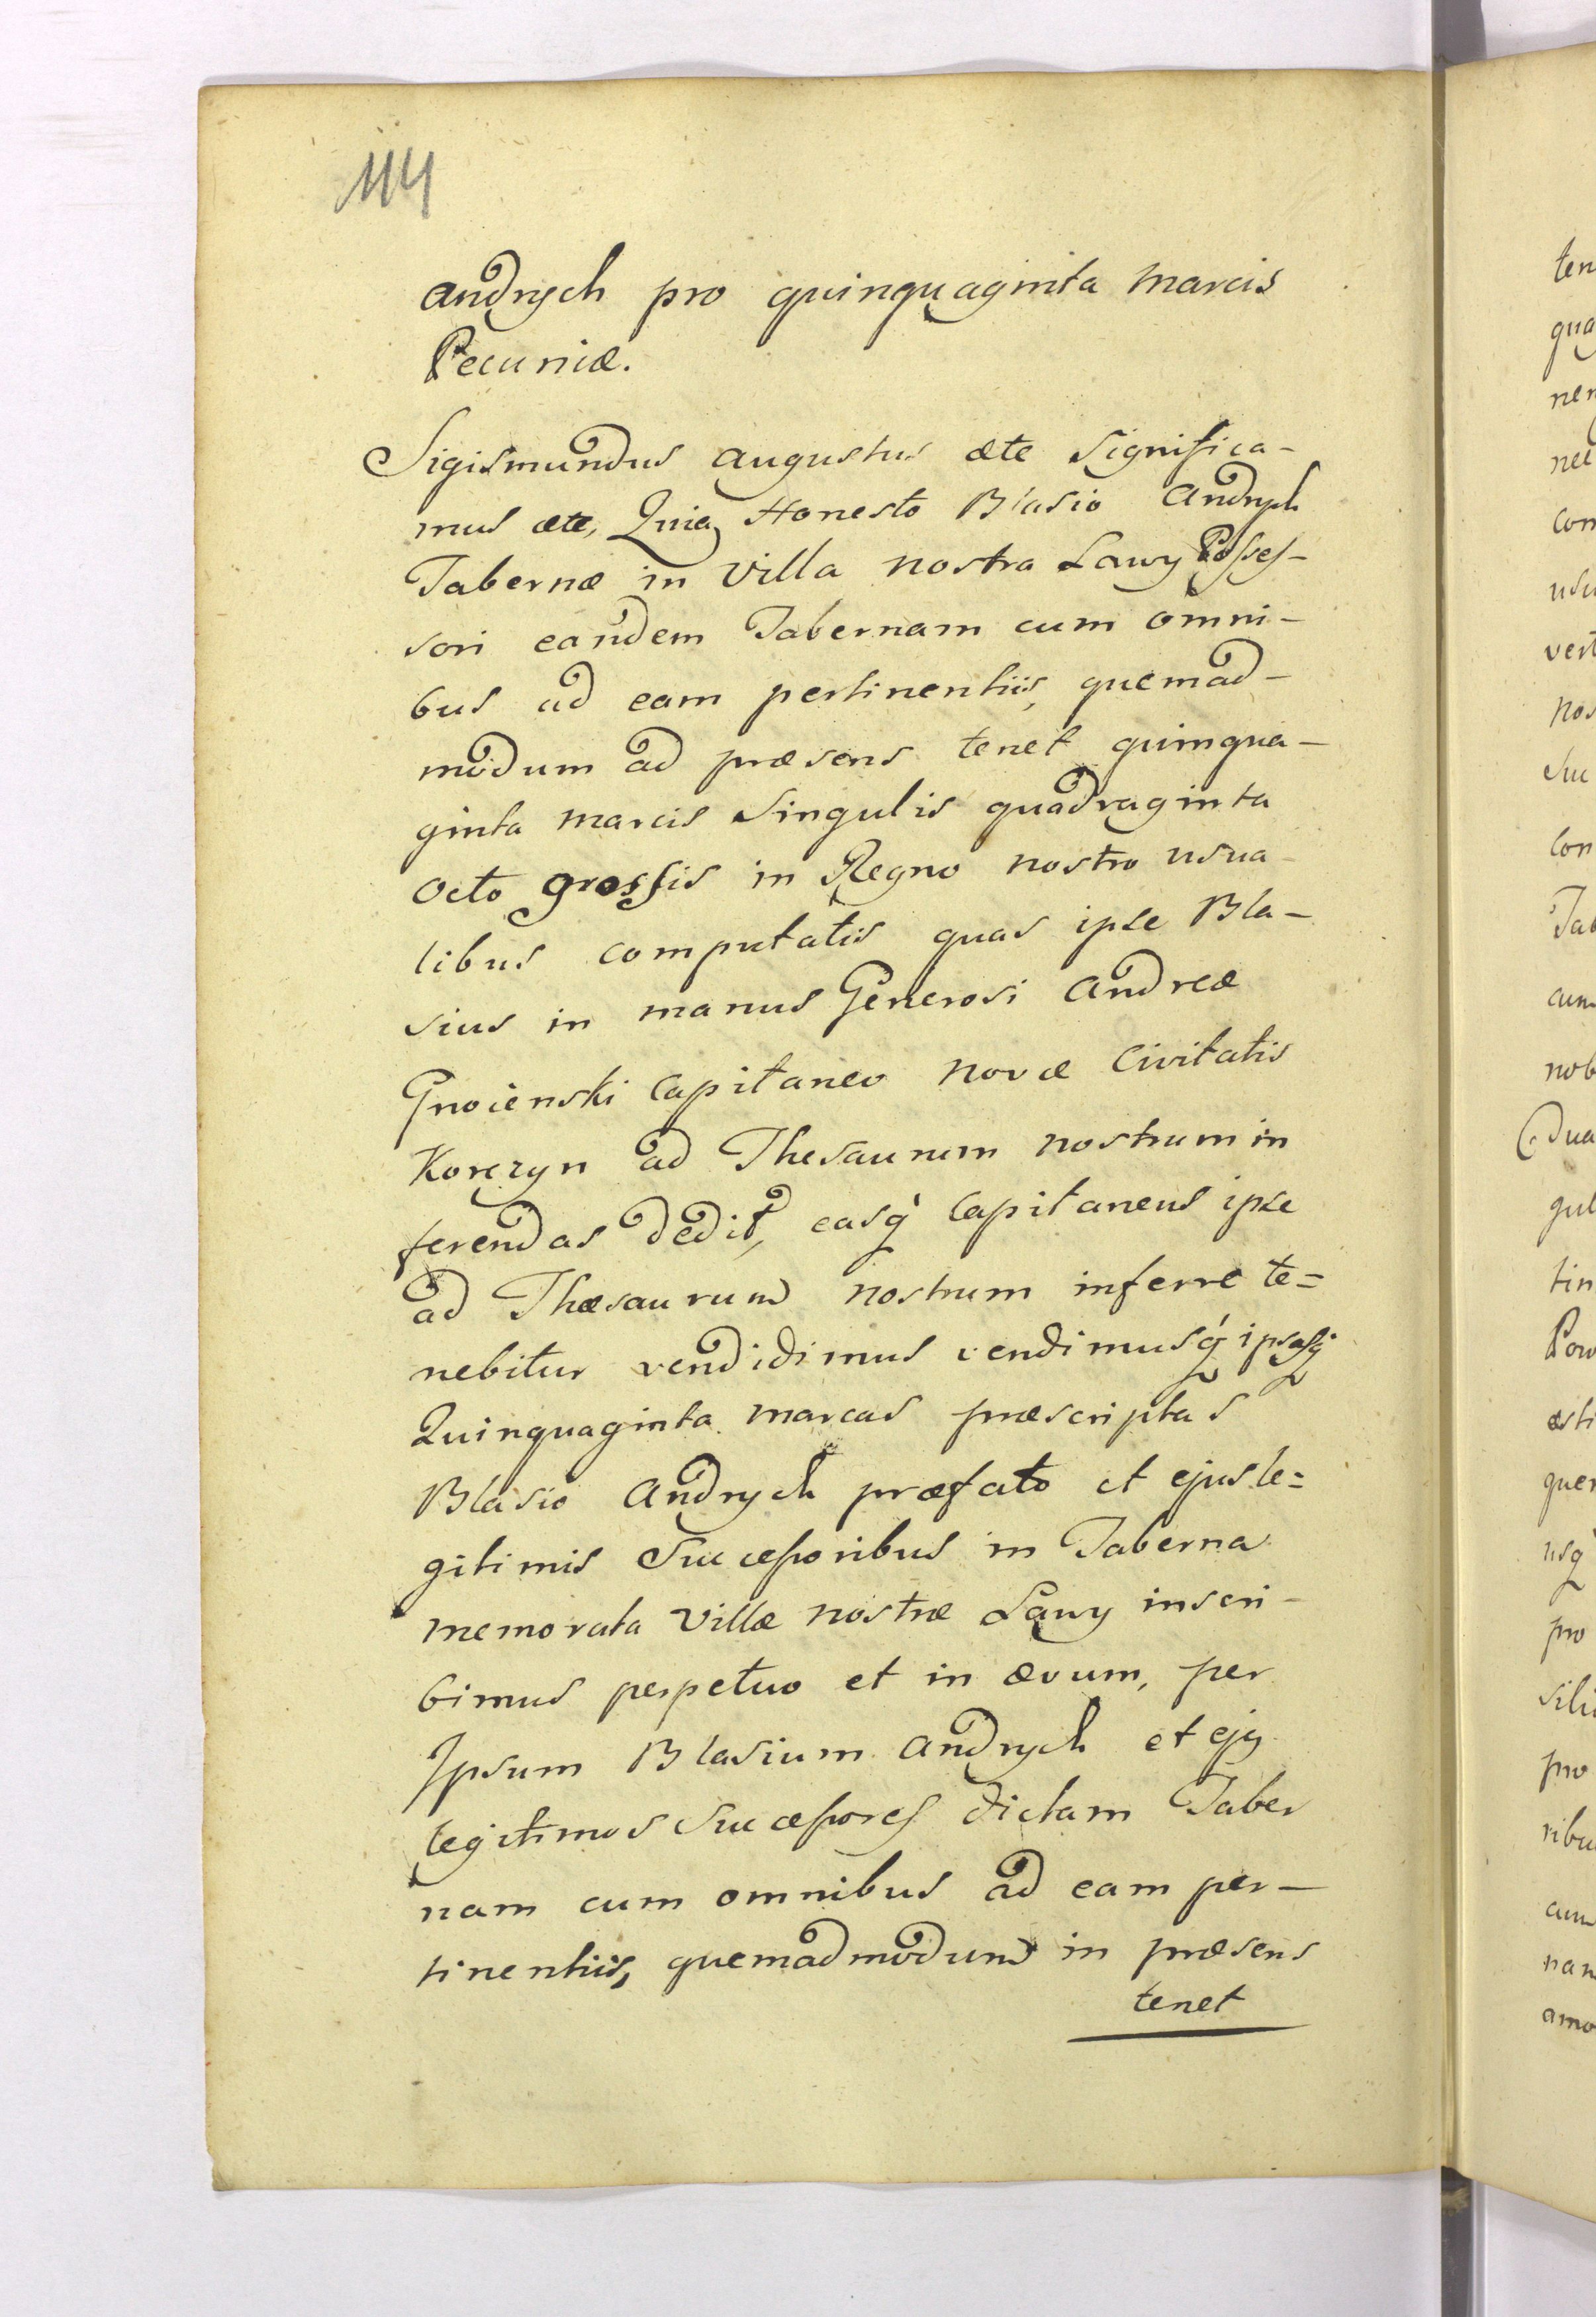 114
andrych pro quinquaginta Marcis
Pecuniæ.
Sigismundus augustus æte Significa-
mus æte, Quia Honesto Blasio andrych
Tabernæ in villa nostra Lawy Posses-
sori eandem Tabernam cum omni-
bus ad eam pertinentiis, quemad-
modum ad præsens tenet quinqua-
ginta marcis Singulis quadraginta
octo grossis in Regno nostro usua-
libus computatis quas ipse Bla-
sius in manus Generosi andreæ
Gnoienski Capitaneo novæ Civitatis
Korczyn ad Thesaurum nostrum in
ferendas dedit, easq́ Capitaneus ipse
ad Thæsaurum nostrum inferre te=
nebitur vendidimus vendimusq́ ipsasq́
Quinquaginta marcas præscriptas
Blasio andrych præfato et ejus le=
gitimis Successoribus in Taberna
memorata villæ nostræ Lawy inscri-
bimus perpetuo et in ævum, per
Ipsum Blasium andrych et ejus
legitimos Successores dictam Taber
nam cum omnibus ad eam per-
tinentiis, quemadmodum in præsens
tenet
ten
qua
nen
nec
con
usu
vert
nos
Suc
con
Tab
cum
nob
dua
gul
tin
Pow
æsti
quer
usq́
pro
sili
pro
ribu
cum
nam
amo